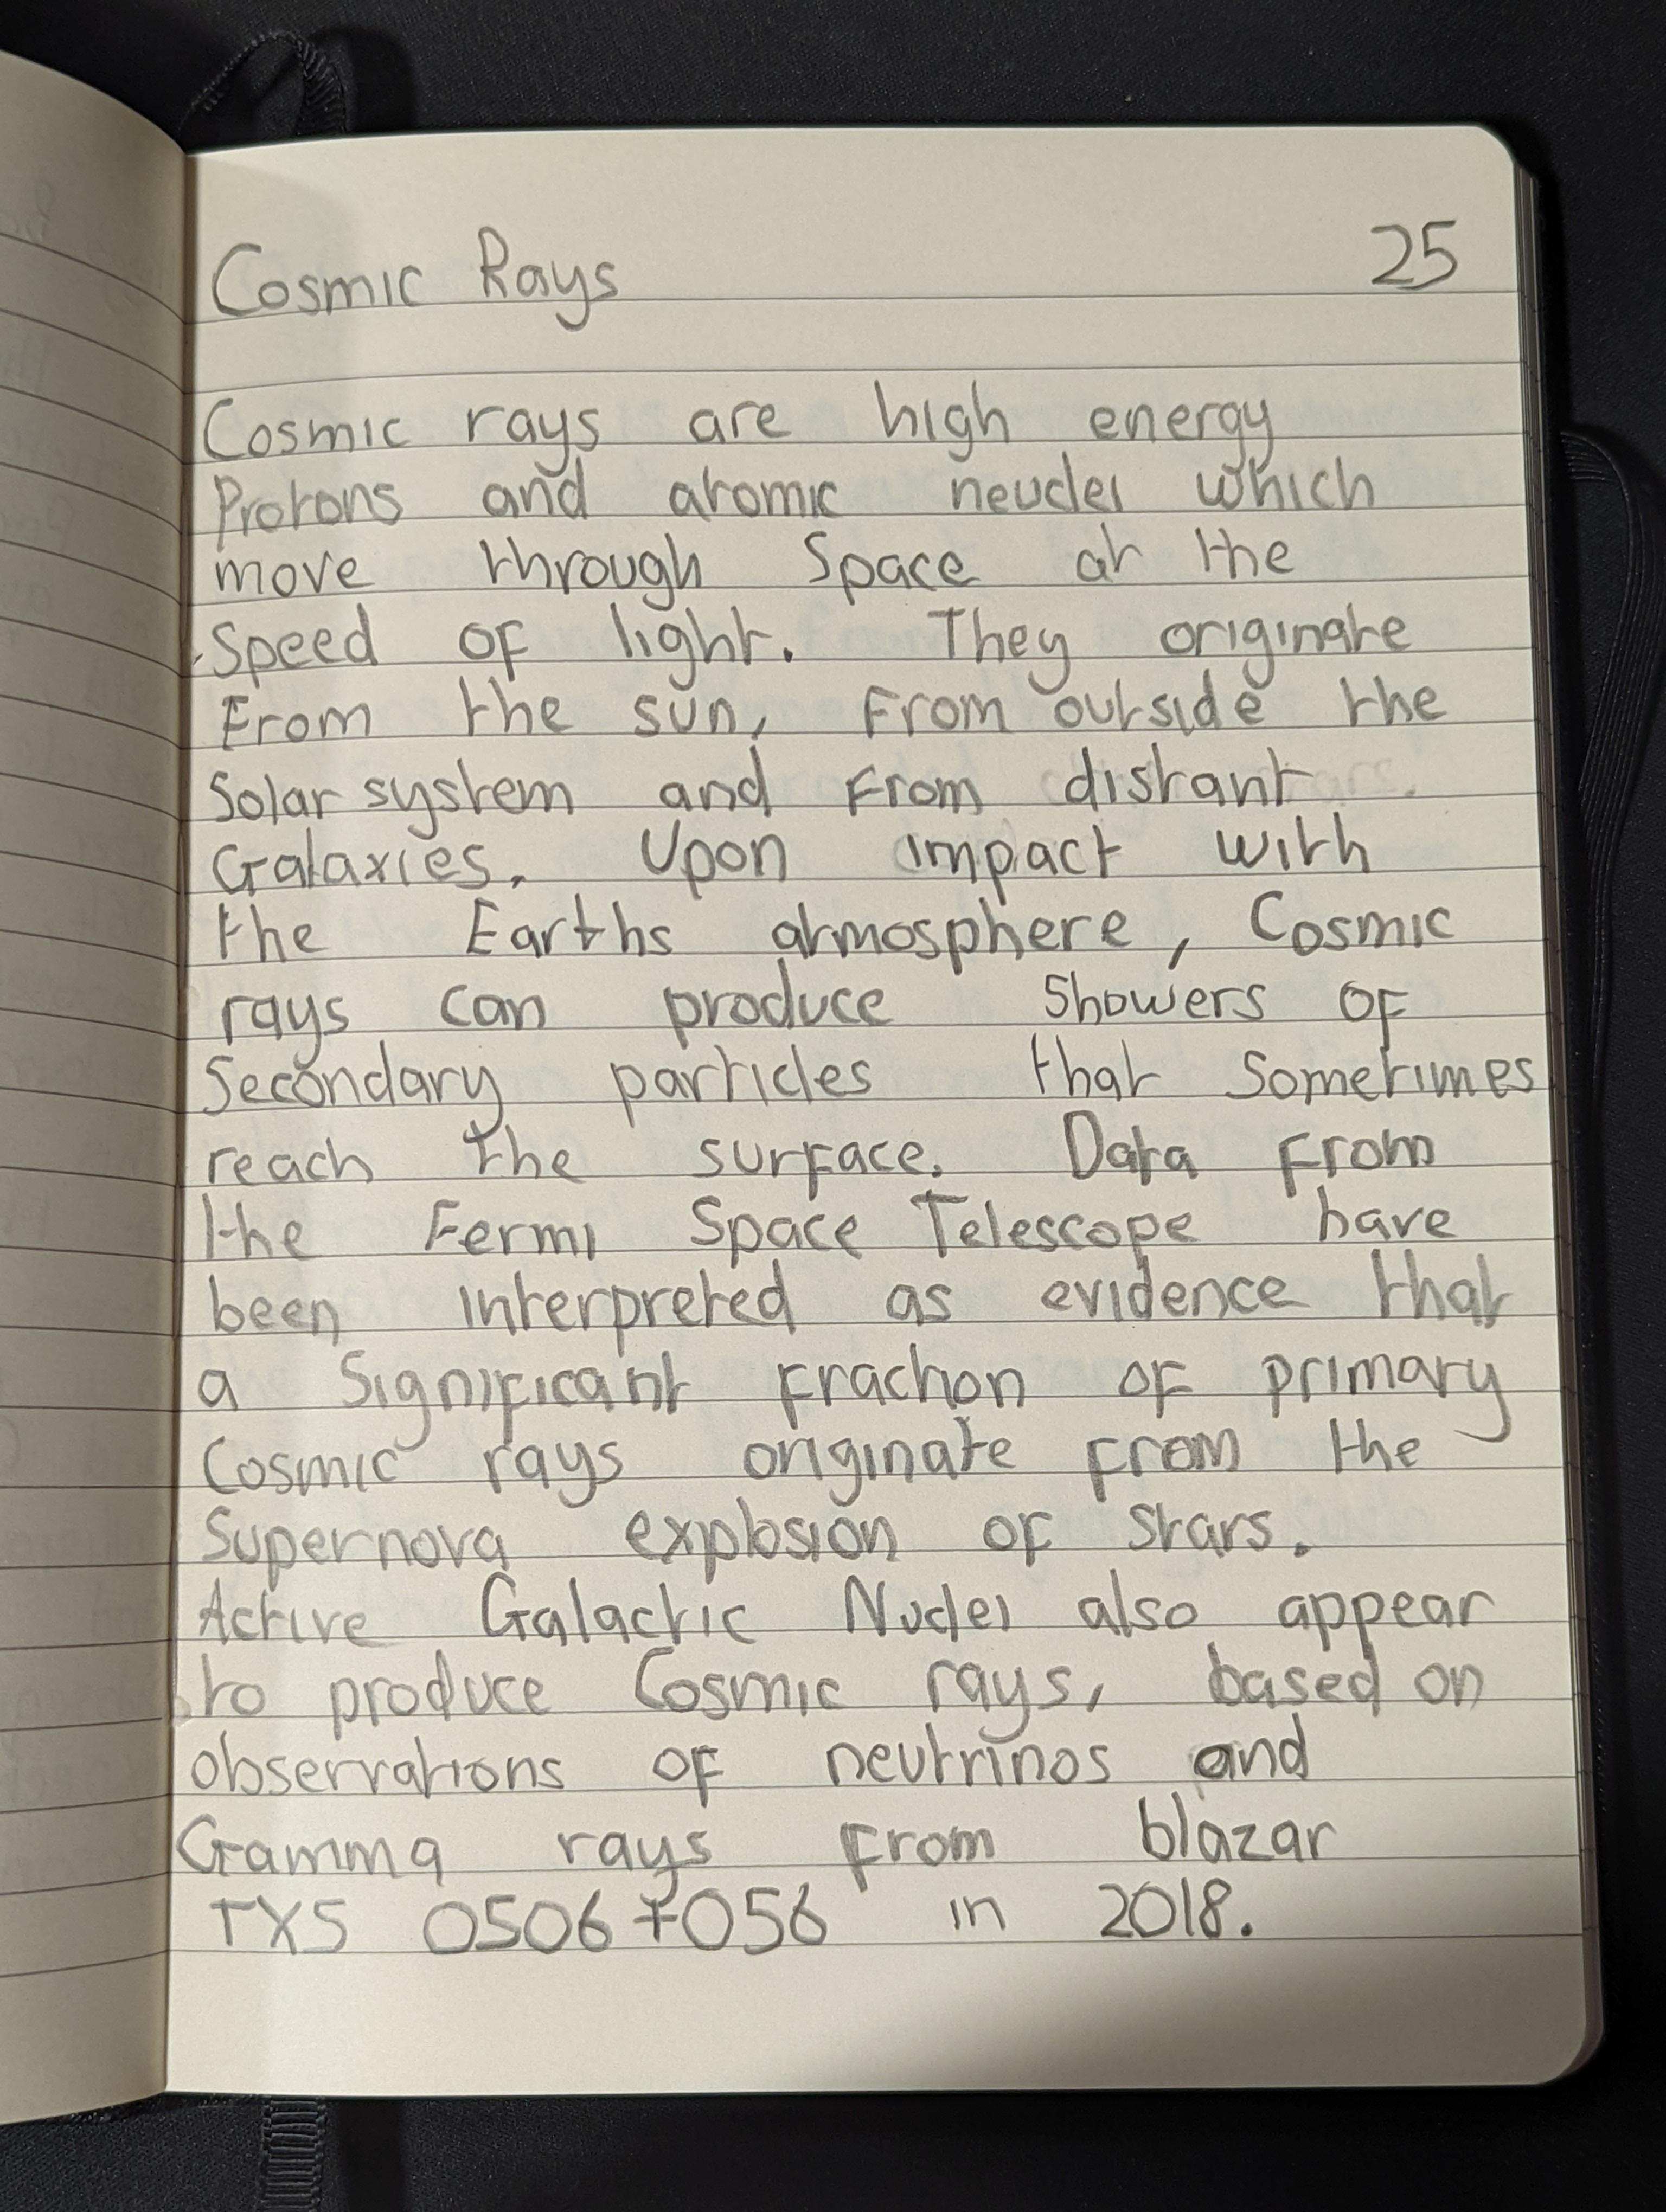 Cosmic Rays 25
Cosmic rays are high energy
Protons and atomic neuclei which
move through Space at the
Speed of light. They originate
From the sun, From outside the
Solar system and From distant
Galaxies. Upon impact with
the Earths atmosphere, Cosmic
rays can produce Showers of
Secondary particles that Sometimes
reach the surface. Data From
the Fermi Space Telescope have
been interpreted as evidence that
a Significant Fraction of primary
Cosmic rays originate From the
Supernova explosion of stars.
Active Galactic Nuclei also appear
to produce Cosmic rays, based on
observations of neutrinos and
Gamma rays From blazar
TXS 0506+056 in 2018.